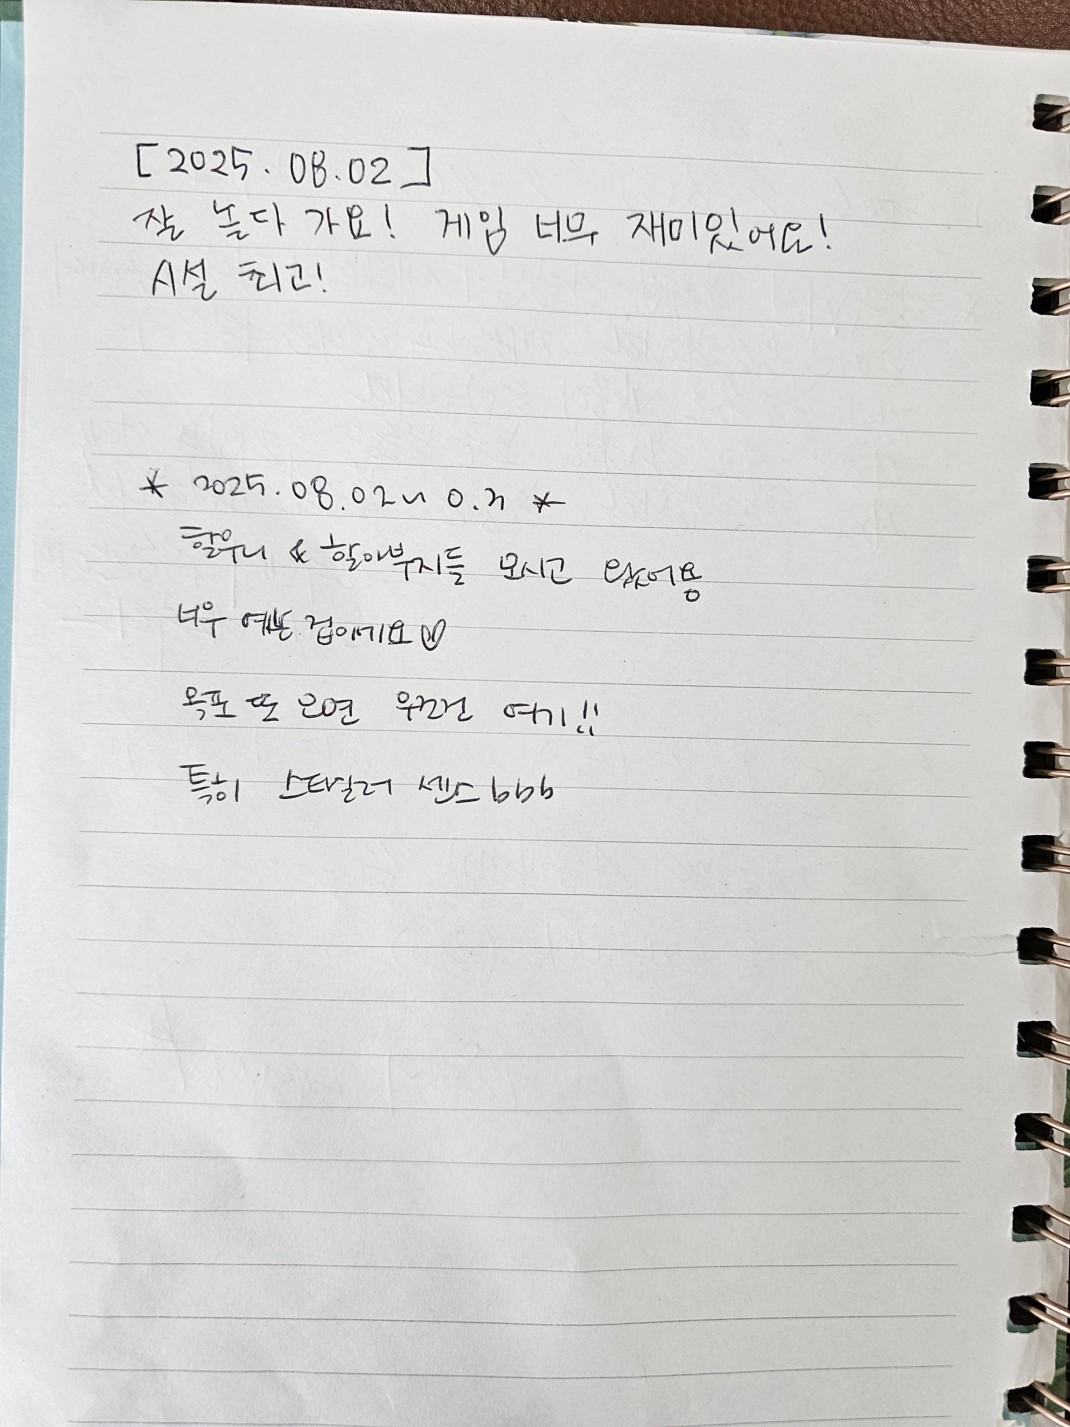 [2025.08.02]
잘 놀다 가요! 게임 너무 재미있어요!
시설 최고!
* 2025.08.02~ 0.3 *
할무니 & 할아부지들 모시고 왔어용
너무 예쁜 집이에요♡
목포 또 오면 무조건 여기!!
특히 스타일러 센스 bbb